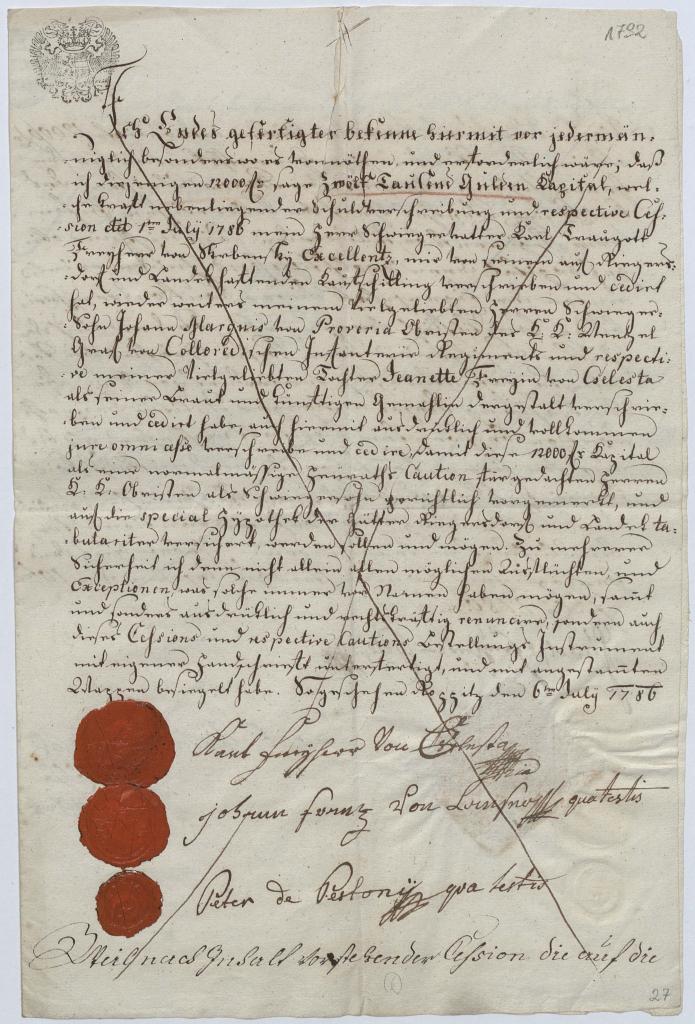 1792
Ich Endes gefertigter bekenne hiermit vor jedermän¬
niglich besonders wo es vonnöthen und erforderlich wäre; daß
ich diejenigen 12000 f sage Zwölf Tausend Gulden Kapital, wel¬
che kraft nebenliegender Schuldverschreibung und respective Ces¬
sion ddt 1ten July 1786 mein Herr Schwiegervatter Karl Traugott
Freyherr von Skrbensky Excellentz, mir von seinen auf Riegers¬
dorf und Landek haftenden Kaufschilling verschrieben und cedirt
hat, wieder weiters meinem Vielgeliebten Herren Schwieger¬
Sohn Johann Marquis von Obristen des K: K: Wentzel
Graf von Colloredischen Infanterie Regiments und respecti¬
ve meiner Vielgeliebten Tochter Jeanette Freyin von Cselesta
als seiner Braut und künftigen Gemahlin dergestalt verschrie¬
ben und cedirt habe, auch hiermit ausdrüklich und vollkommen
jure omni verschreibe und cedire, damit diese 12000 f Kapital
als eine normalmässige Heuraths Caution für gedachten Herren
K: K: Obristen als Schwiegersohn gerichtlich vorgemerkt, und
auf die special Hypothek der Gütter Riegersdorf und Landek ta¬
bulariter versichert werden sollen und mögen. Zu mehrerer
Sicherheit ich denn nicht allein allen möglichen Ausflüchten, und
Exceptionen, was solche immer vor Namen haben mögen, samt
und sonders ausdrüklich und rechtskräftig renuncire, sondern auch
dieses Cessions und respective Cautions Bestellungs Instrument
mit eigener Handschrift unterfertigt, und mit angestamten
Wappen besiegelt habe. So geschehen Roppitz den 6ten July 1786
Karl Freyherr von Cselesta
Johann Frantz von qua testis
Peter de qua testis
Weil nach Inhalt vorstehender Cession die auf die
27